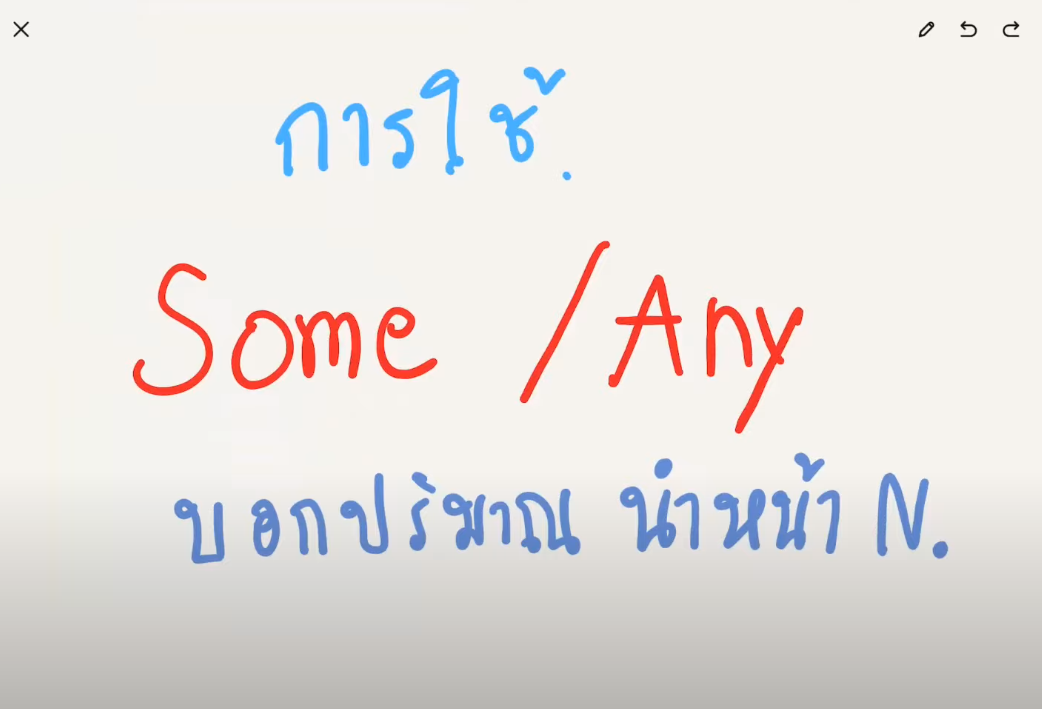 การใช้.
Some / Any
บอกปริมาณ นำหน้า N.